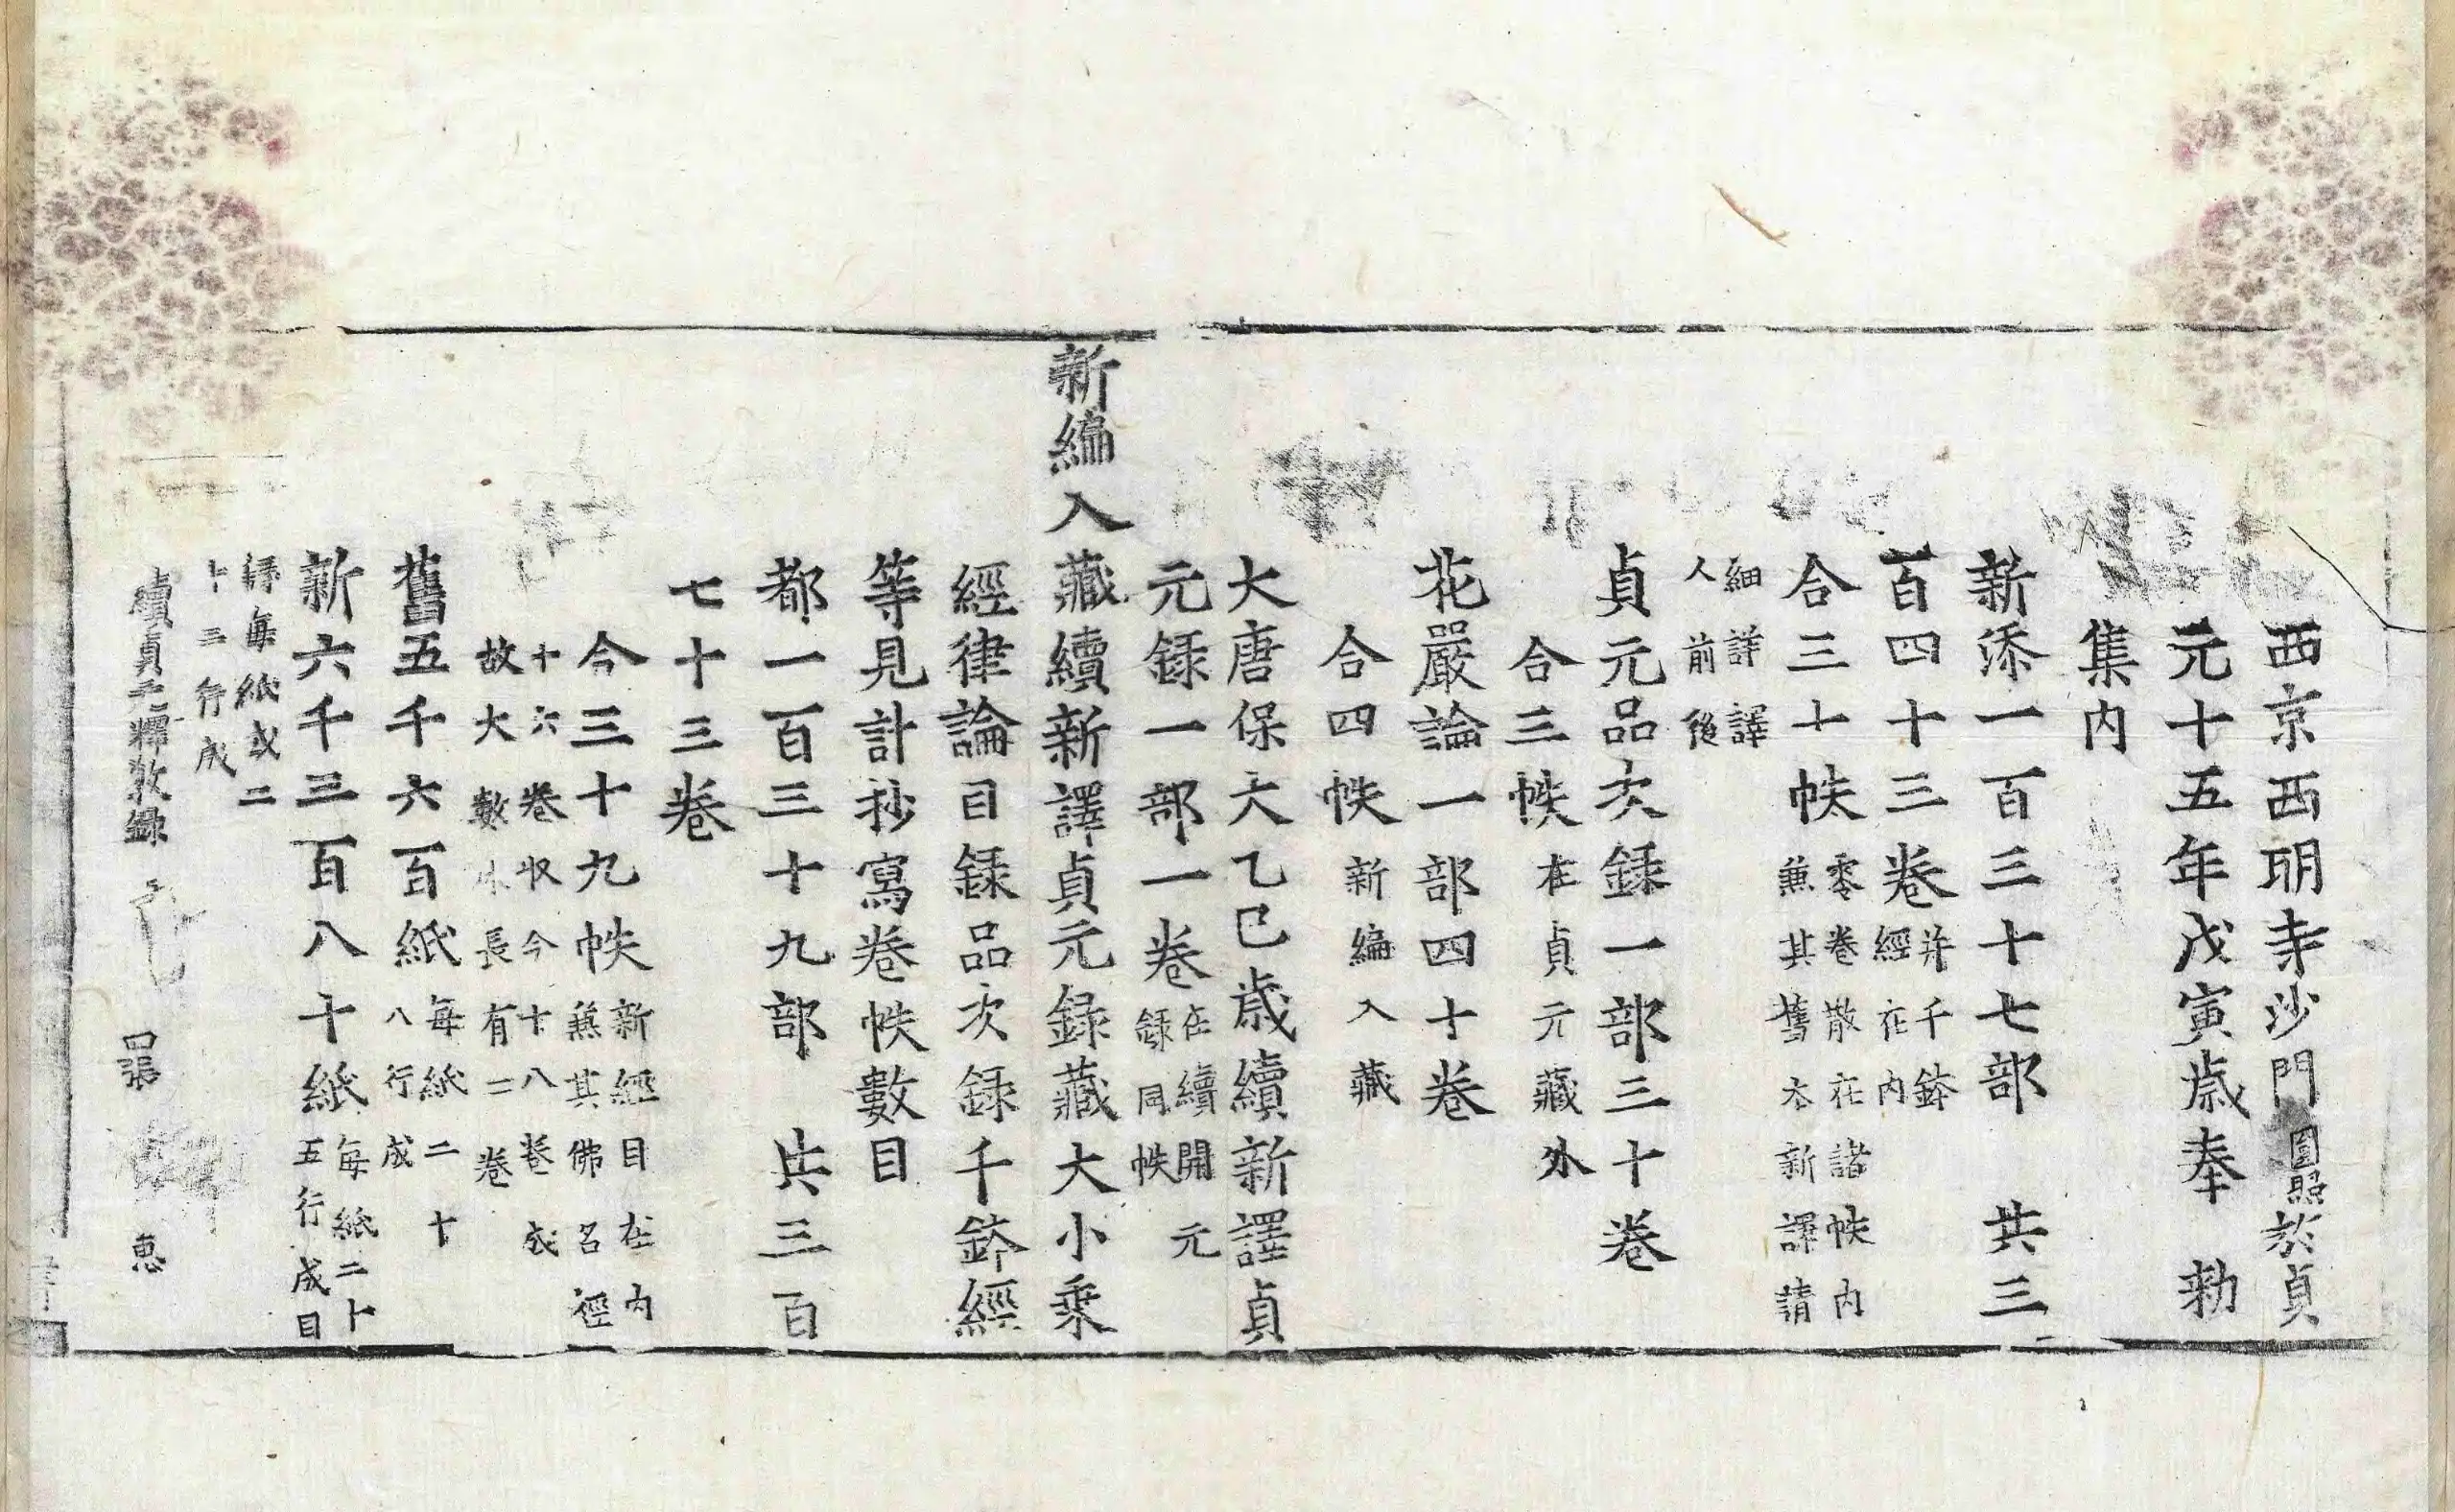 西京西明寺沙門圓照於貞
元十五年戊寅歲奉　勑
集内
新添一百三十七部　共三
百四十三卷并千鉢經在内
合三十帙零卷散在諸帙内兼其舊本新譯請
細詳譯人前後
貞元品次録一部三十卷
合三帙在貞元藏外
花嚴論一部四十卷
合四帙新編入藏
大唐保大乙巳歲續新譯貞
元録一部一卷在續開元録同帙
新編入藏續新譯貞元録藏大小乘
經律論目録品次録千鉢經
等見計抄寫卷帙數目
都一百三十九部　共三百
七十三卷
今三十九帙新經目在内兼其佛名經
十六卷収今十八卷成故大數長有二卷
舊五千六百紙每紙二十八行成
新六千三百八十紙每紙二十五行成目
録每紙或二十三行成
續貞元釋教録　四張　惠